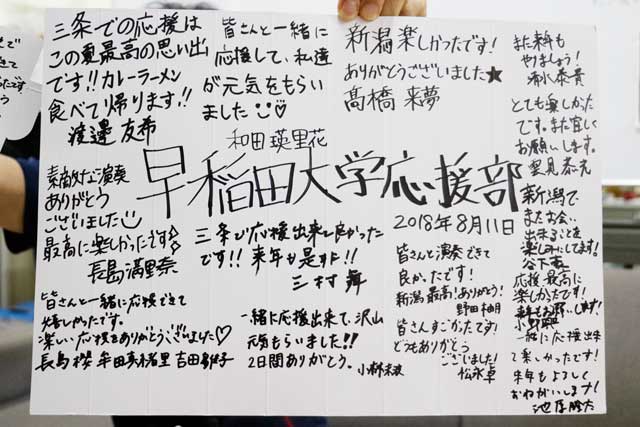 三条での応援は
この夏最高の思い出
です!!カレーラーメン
食べて帰ります!!
渡邊 友希
皆さんと一緒に
応援して、私達
が元気をもらい
ました
和田 瑛里花
新潟楽しかったです!
ありがとうございました★
髙橋 来夢
また来年も
やりましょう!
とても楽しかった
です。また宜しく
お願いします。
早稲田大学応援部
2018年8月11日
素敵な演奏
ありがとう
ございました
最高に楽しかったです
長島 満里奈
三条で応援出来て良かった
です!!来年も是非!!
三村 舞
皆さんと演奏できて
良かったです!
新潟最高!ありがとう!
野田 柚月
皆さんすごかったです!
どうもありがとう
ございました!
松永 卓
新潟で
またお会い
出来ることを
楽しみにしてます!
応援、最高に
楽しかったです!
来年もお願いします!
一緒に応援出来
て楽しかったです!
来年もよろしく
おねがいします!
皆さんと一緒に応援できて
嬉しかったです。
楽しい応援をありがとうございました♡
長島 櫻
一緒に応援出来て、沢山
元気もらいました!!
2日間ありがとう。